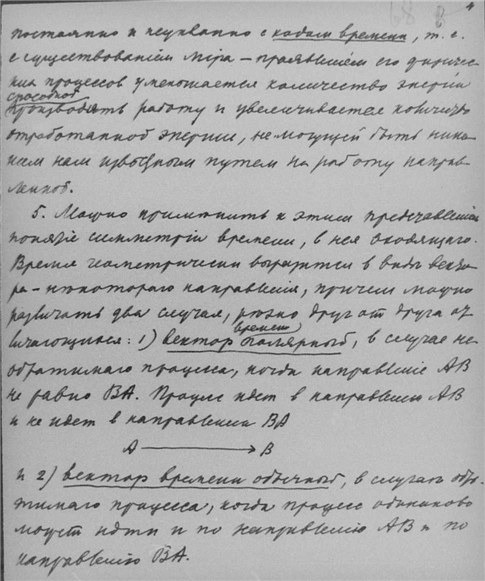 68 8 4
постоянно и неуклонно с ходом времени, т. е.
с существованіем міра – проявленіем его физичес-
ких процессов уменьшается количество энергии
способной
производить работу и увеличивается количество
отработанной энергии, не могущей быть ника-
ким нам известным путем на работу направ-
ленной.
5. Можно применить к этим представленіям
понятіе симметріи времени, в нея входящаго.
Время геометрически выразится в виде векто-
ра – некотораго направленія, причем можно
различать два случая, резко друг от друга от-
времени
личающихся: 1) вектор полярный, в случае не-
обратимаго процесса, когда направленіе АВ
не равно ВА. Процесс идет в направленіи АВ
и не идет в направленіи ВА
А В
и 2) вектор времени обычный, в случае обра-
тимаго процесса, когда процесс одинаково
может идти и по направленію АВ и по
направленію ВА.